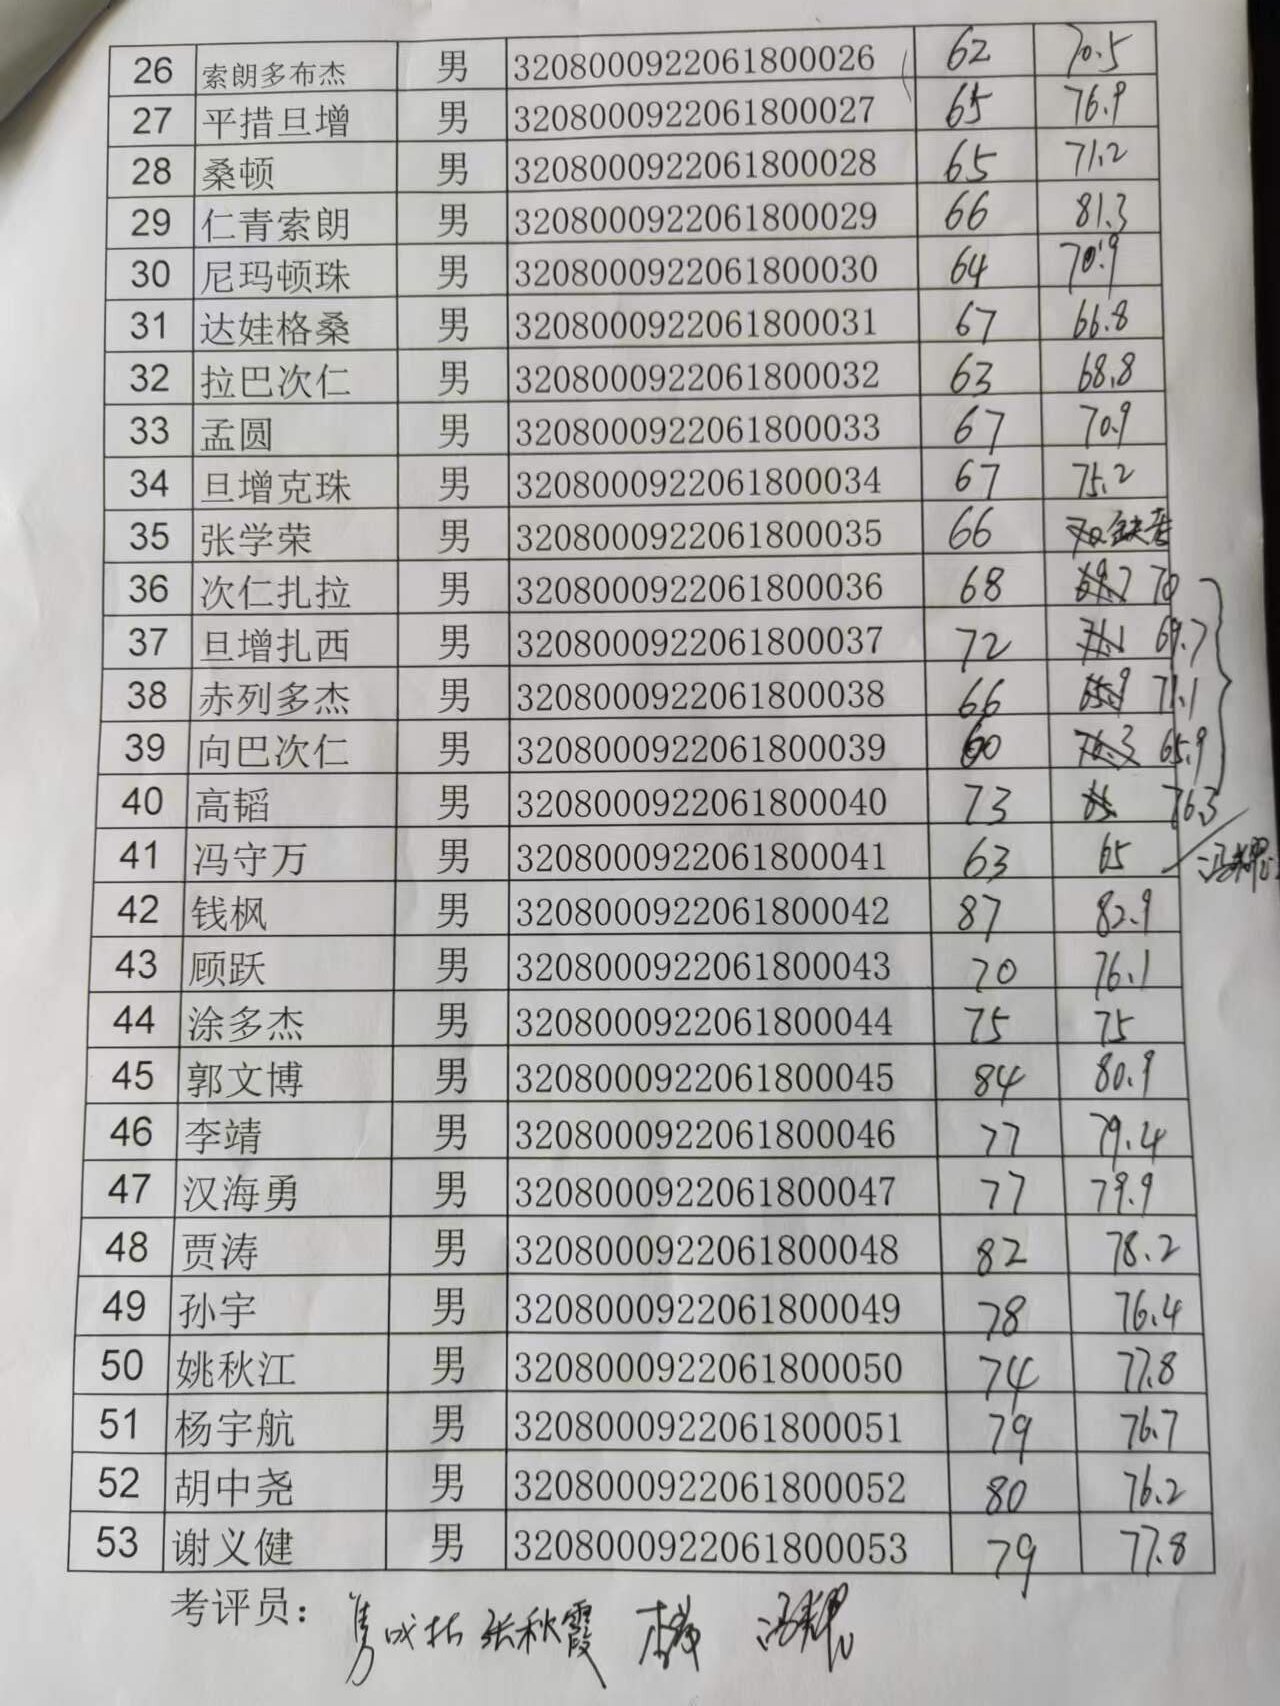 26 索朗多布杰 男 3208000922061800026 62 70.5
27 平措旦增 男 3208000922061800027 65 76.9
28 桑顿 男 3208000922061800028 65 71.2
29 仁青索朗 男 3208000922061800029 66 81.3
30 尼玛顿珠 男 3208000922061800030 64 70.9
31 达娃格桑 男 3208000922061800031 67 66.8
32 拉巴次仁 男 3208000922061800032 63 68.8
33 孟圆 男 3208000922061800033 67 70.9
34 旦增克珠 男 3208000922061800034 67 75.2
35 张学荣 男 3208000922061800035 66 70 缺考
36 次仁扎拉 男 3208000922061800036 68 69.7 70
37 旦增扎西 男 3208000922061800037 72 71.1 69.7
38 赤列多杰 男 3208000922061800038 66 65.9 71.1
39 向巴次仁 男 3208000922061800039 60 76.3 65.9
40 高韬 男 3208000922061800040 73 65 76.3
41 冯守万 男 3208000922061800041 63 65
42 钱枫 男 3208000922061800042 87 82.9
43 顾跃 男 3208000922061800043 70 76.1
44 涂多杰 男 3208000922061800044 75 75
45 郭文博 男 3208000922061800045 84 80.9
46 李靖 男 3208000922061800046 77 79.4
47 汉海勇 男 3208000922061800047 77 79.9
48 贾涛 男 3208000922061800048 82 78.2
49 孙宇 男 3208000922061800049 78 76.4
50 姚秋江 男 3208000922061800050 74 77.8
51 杨宇航 男 3208000922061800051 79 76.7
52 胡中尧 男 3208000922061800052 80 76.2
53 谢义健 男 3208000922061800053 79 77.8
考评员： 张秋霞